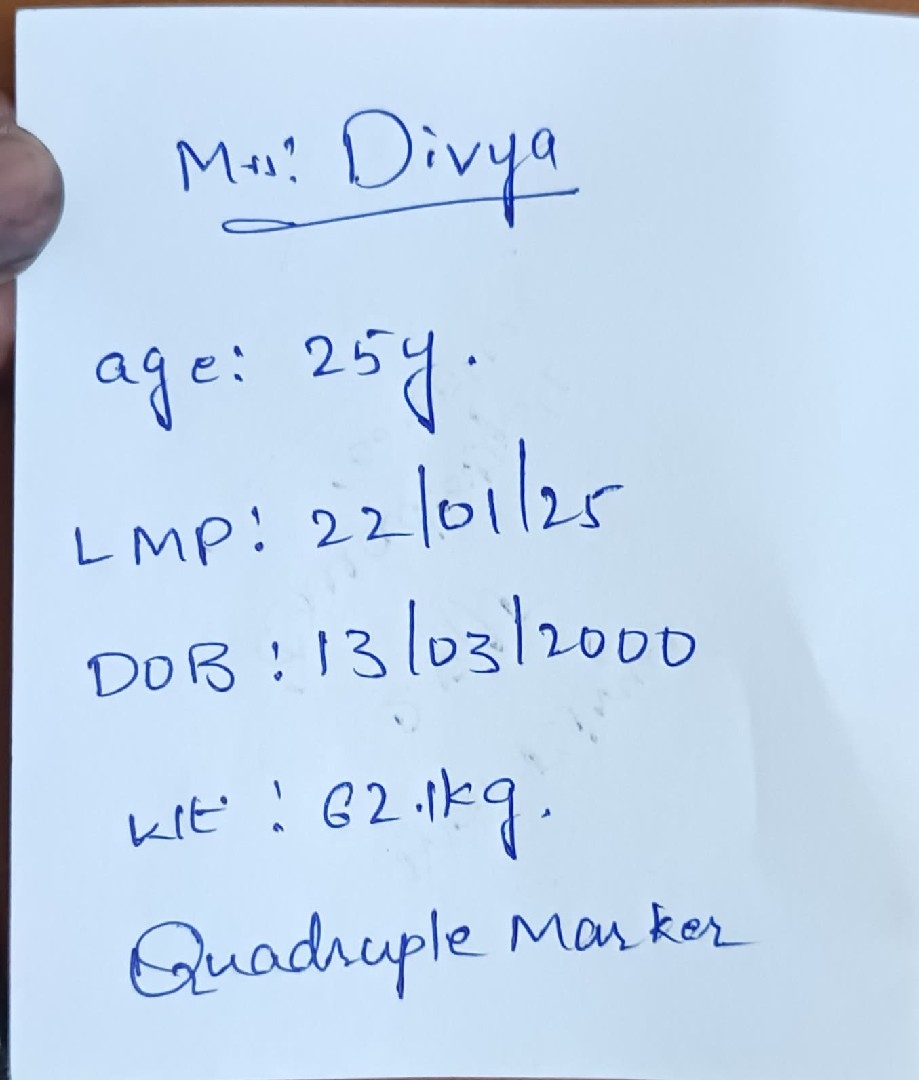 Mrs: Divya
age: 25y.
LMP: 22/01/25
DOB: 13/03/2000
Wt: 62.1kg.
Quadruple Marker